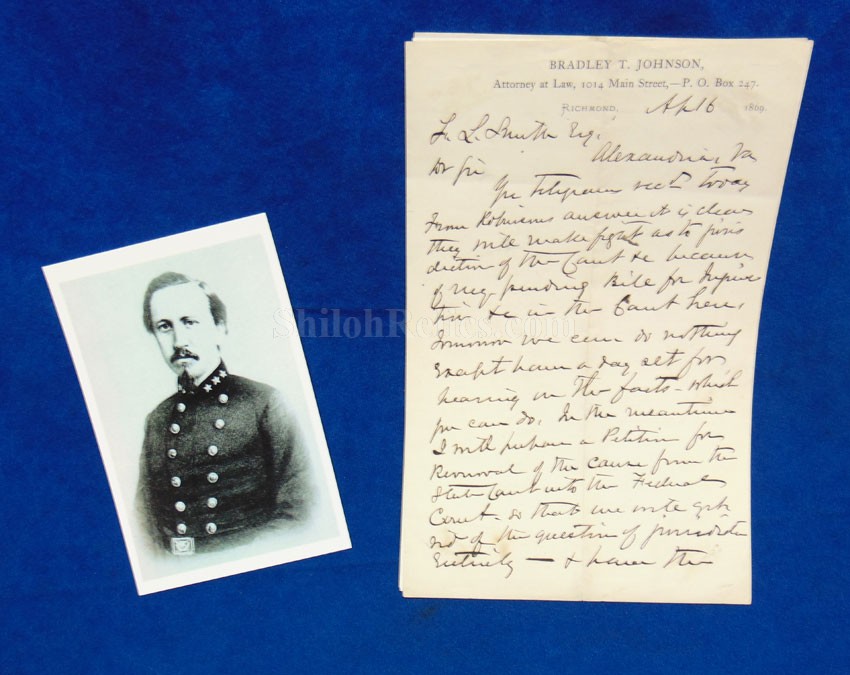 BRADLEY T. JOHNSON,
Attorney at Law, 1014 Main Street,—P. O. Box 247.
RICHMOND, Ap 16 1869.
L. Smith Esq.
Alexandria, Va
Dr Sir
Yr telegram recd today
From Robinsons answer it is clear
they will make fight as to juris
diction of the Court &c because
of my pending Bill for Injunc
tion &c in the Court here.
Tomorrow we can do nothing
except have a day set for
hearing on the facts - which
you can do. In the meantime
I will prepare a Petition for
Removal of the cause from the
State Court into the Federal
Court - so that we will get
rid of the question of jurisdiction
Entirely — & have the
ShilohRelics.com